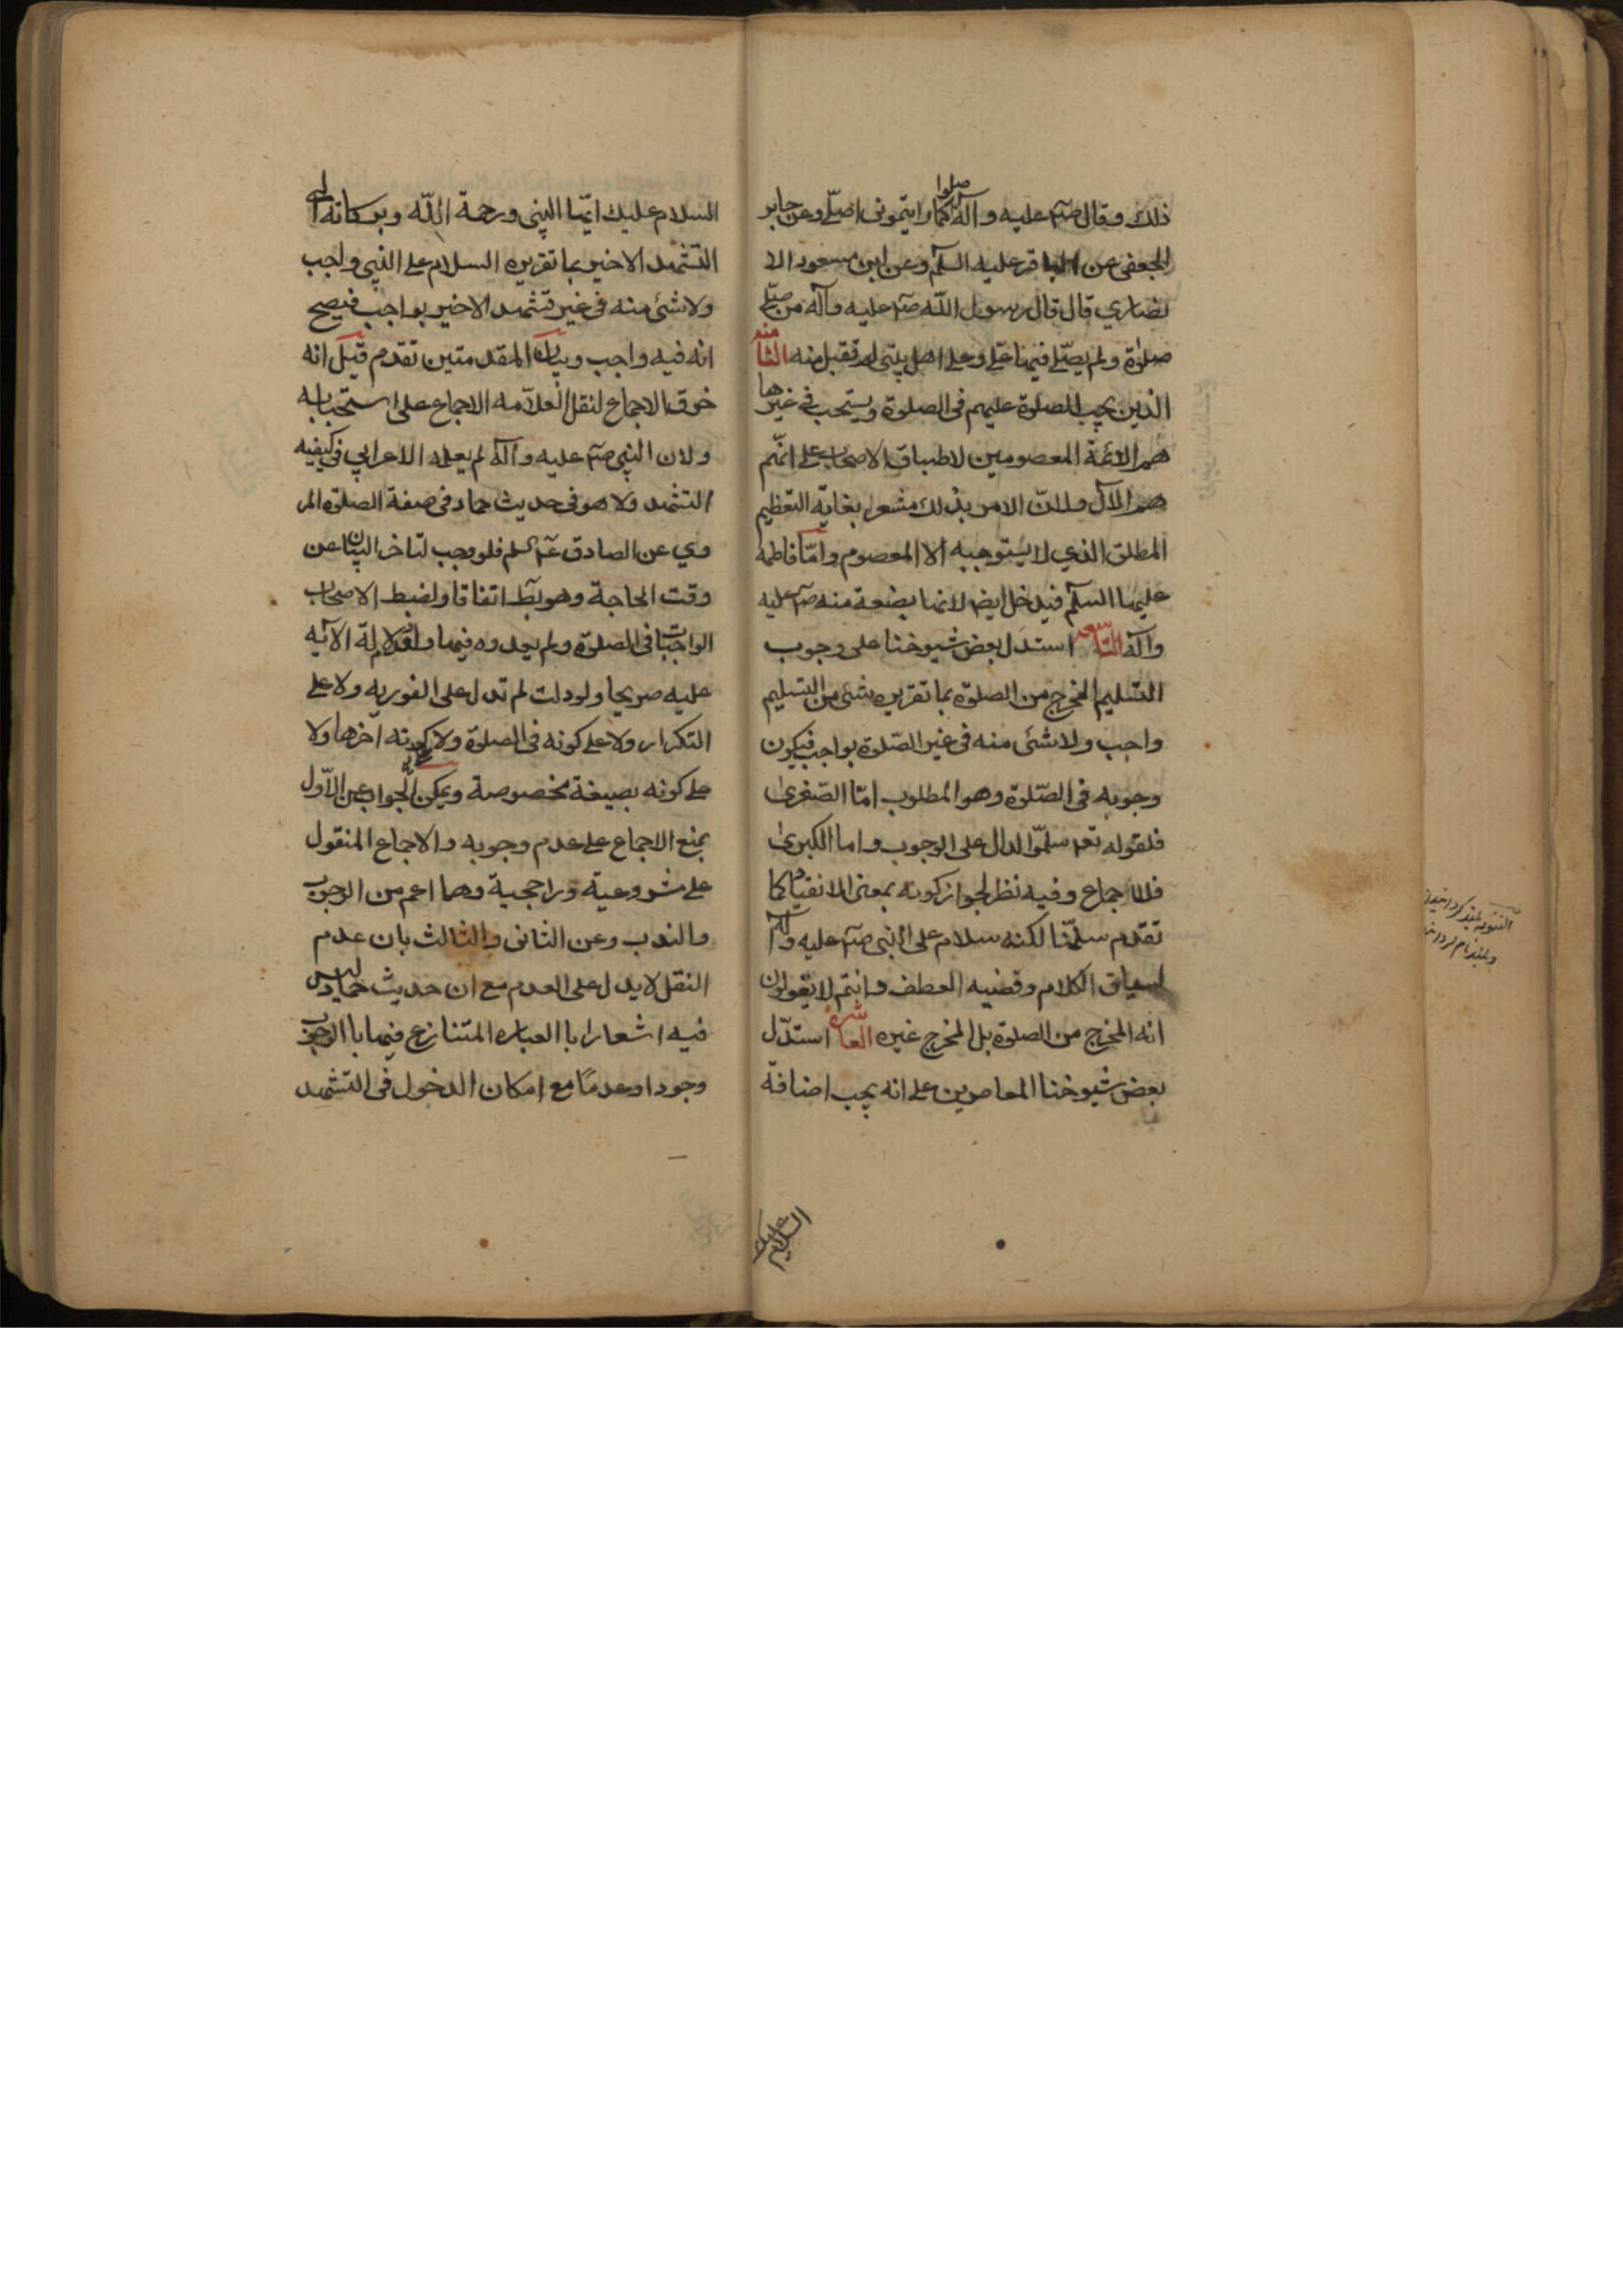 ذلك وقال صلم عليه وآله صلوا كما رايتموني اصلي وعن جابر
الجعفي عن الباقر عليه السلم وعن ابن مسعود الا
نصاري قال قال رسول الله صلم عليه وآله من صلى
صلوة ولم يصلي فيها علي وعلى اهل بيتي لم تقبل منه الثامنه
الذين يجب الصلوة عليهم في الصلوة ويستحب في غيرها
هم الائمة المعصومين لاطباق الاصحاب على انهم
هم الآل ولان الامر بذلك مشعرا بغاية التعظيم
المطلق الذي لا يستوجبه الا المعصوم واما فاطمه
عليها السلم فيدخل ايضا لانها بضعة منه صلم عليه
وآله التاسعه استدل بعض شيوخنا على وجوب
التسليم المخرج من الصلوة بما تقريره شئ من التسليم
واجب ولا شئ منه في غير الصلوة بواجب فيكون
وجوبه في الصلوة وهو المطلوب اما الصغرى
فلقوله تعه سلموا الدال على الوجوب واما الكبرى
فللاجماع وفيه نظر لجواز كونه بمعنى الانقياد كما
تقدم سلمنا لكنه سلام على النبي صلم عليه وآله
لسياق الكلام وقضيه العطف وانتم لا تقولون
انه المخرج من الصلوة بل المخرج غيره العاشره استدل
بعض شيوخنا المعاصرين على انه يجب اضافة
السلام عليك
السلام عليك ايها النبي ورحمة الله وبركاته الى
التشهد الاخير بما تقريره السلام على النبي واجب
ولا شئ منه في غير تشهد الاخير بواجب فيصح
انه فيه واجب وبيان المقدمتين تقدم قيل انه
خرق الاجماع لنقل العلامه الاجماع على استحبابه
ولان النبي صلم عليه وآله لم يعلمه الاعرابي في كيفيه
التشهد ولا هو في حديث حماد في صفة الصلوة المر
وي عن الصادق عليه السلم فلو وجب لتاخر البيان عن
وقت الحاجة وهو بط اتفاقا ولضبط الاصحاب
الواجبات في الصلوة ولم يعدوه فيها ولعدم دلالة الآيه
عليه صريحا ولو دلت لم تدل على الفوريه ولا على
التكرار ولا على كونه في الصلوة ولا كونه آخرها ولا
على كونه بصيغة مخصوصة ويمكن الجواب عن الاول
بمنع الاجماع على عدم وجوبه والاجماع المنقول
على شروعيته وراجحية وهما اعم من الوجوب
والندب وعن الثاني والثالث بان عدم
النقل لا يدل على العدم مع ان حديث حماد ليس
فيه اشعارا بالعباره المتنازع فيها بالوجوب
وجودا وعدما مع امكان الدخول في التشهد